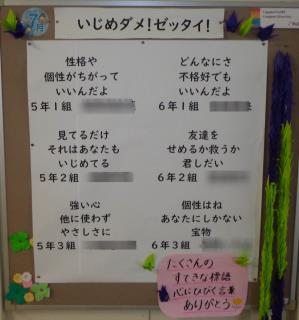 7月
いじめダメ!ゼッタイ!
性格や
個性がちがって
いいんだよ
5年1組
どんなにさ
不格好でも
いいんだよ
6年1組
見てるだけ
それはあなたも
いじめてる
5年2組
友達を
せめるか救うか
君しだい
6年2組
強い心
他に使わず
やさしさに
5年3組
個性はね
あなたにしかない
宝物
6年3組
たくさんの
すてきな標語
心にひびく言葉
ありがとう